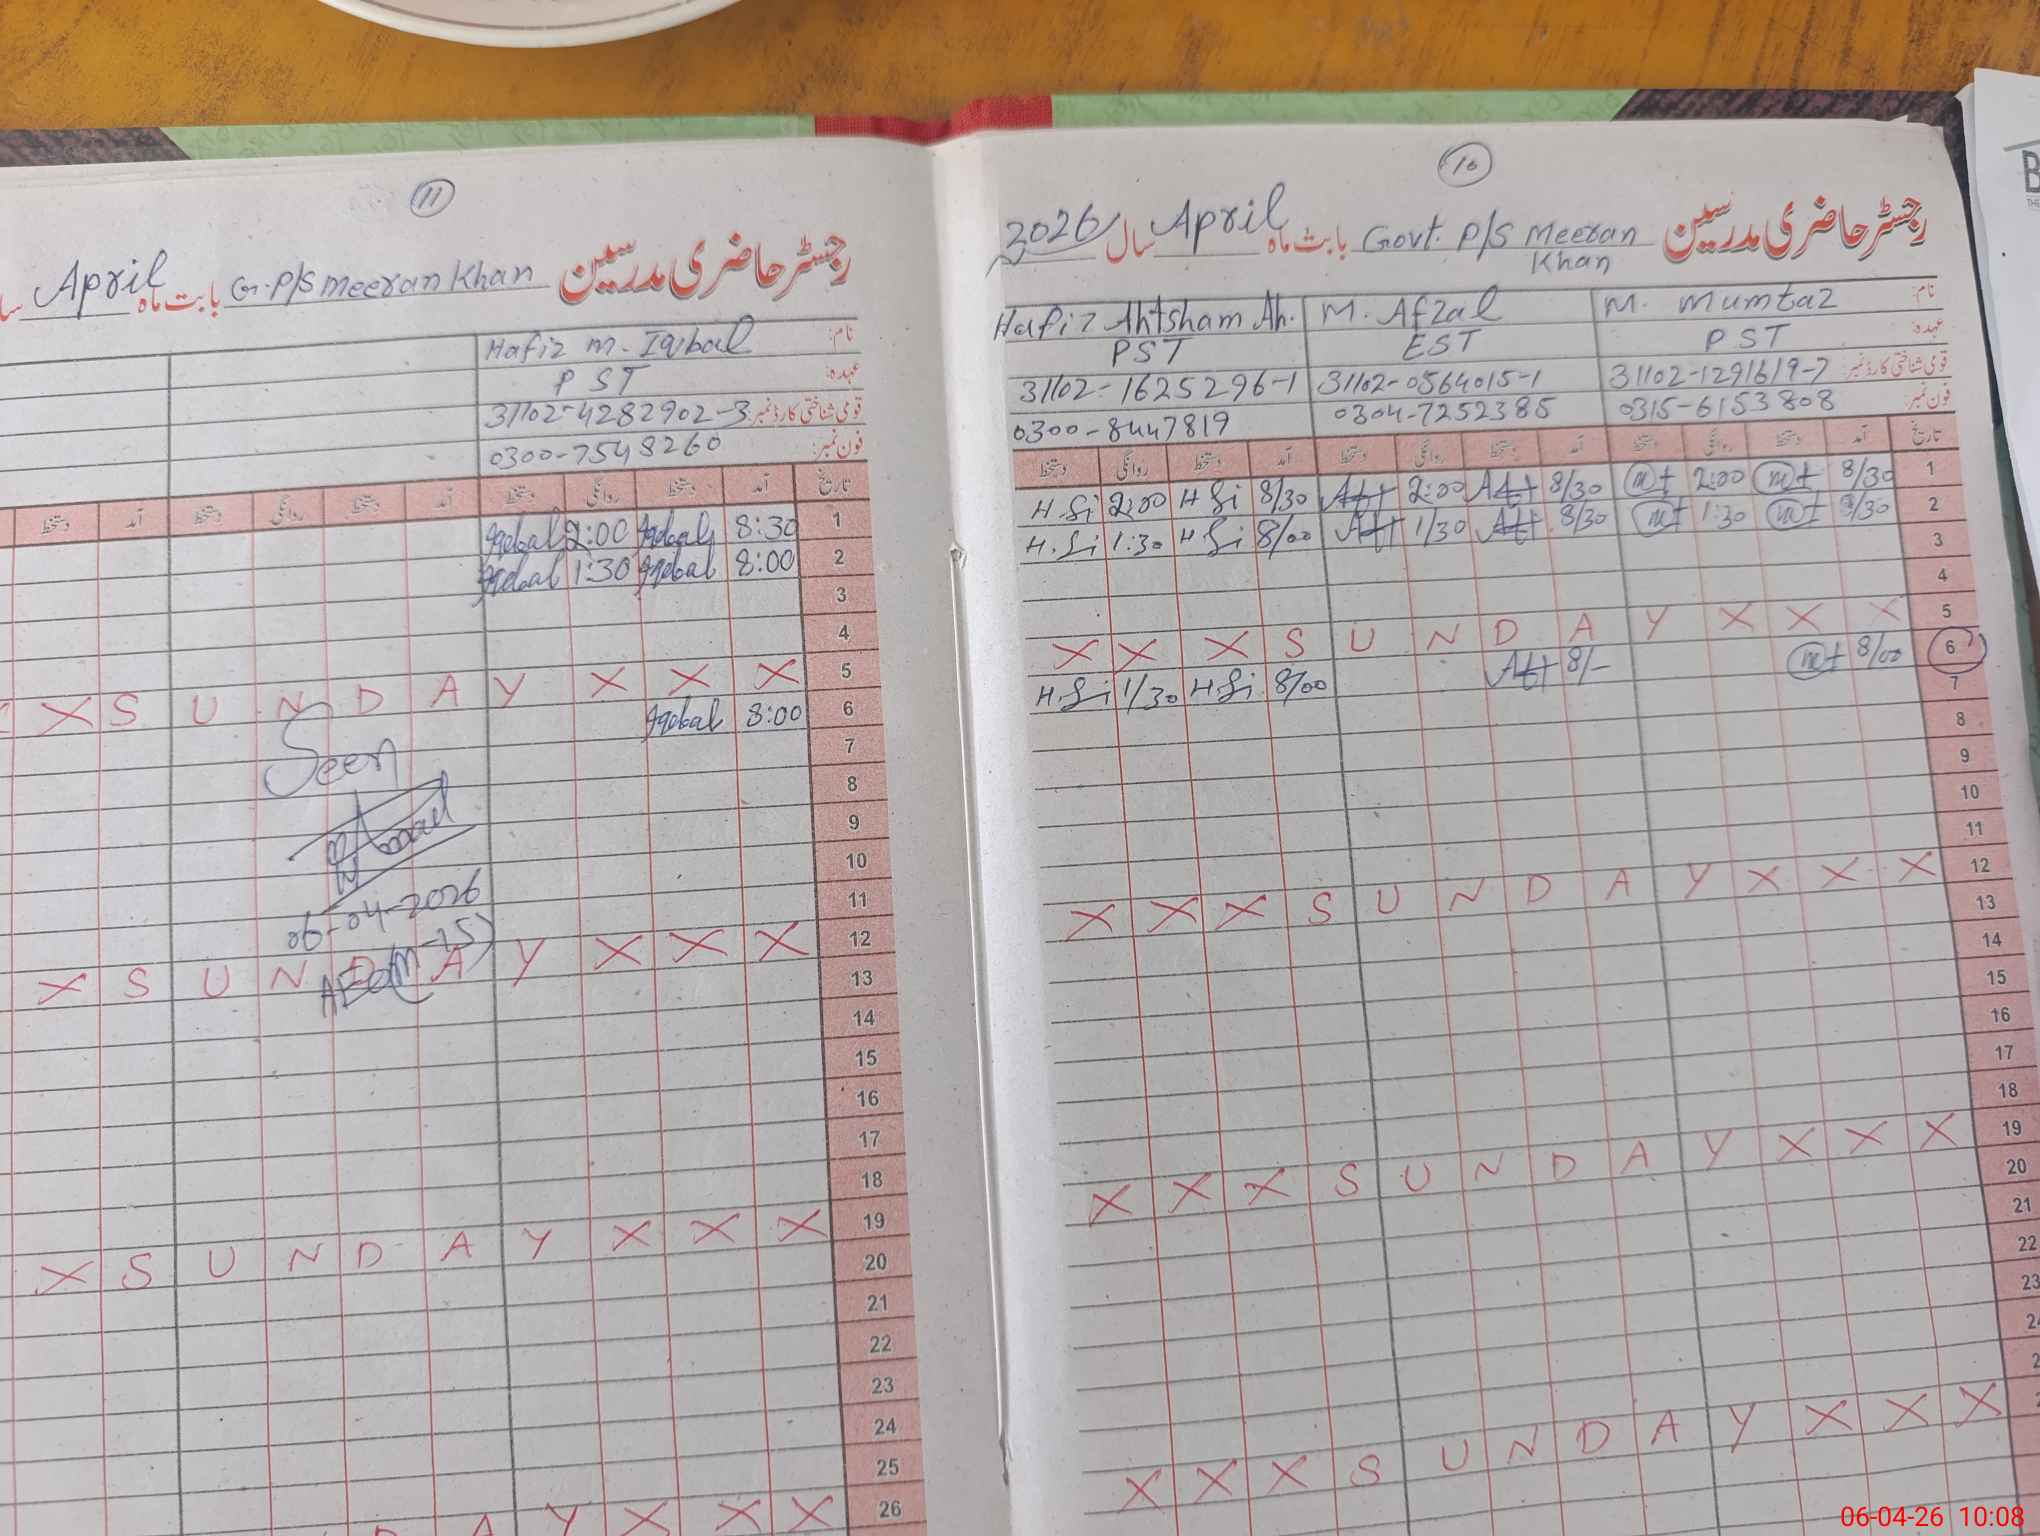 11
رجسٹر حاضری مدرسین بابت ماہ April
G. P/S Meeran Khan
نام: Hafiz M. Iqbal
عہدہ: PST
قومی شناختی کارڈ نمبر: 31102-4282902-3
فون نمبر: 0300-7548260
تاریخ آمد دستخط روانگی دستخط آمد دستخط روانگی دستخط آمد دستخط
1 8:30 Iqbal 2:00 Iqbal
2 8:00 Iqbal 1:30 Iqbal
3
4
5 X S U N D A Y X X X
6 8:00 Iqbal
7
8
9
10
11
12 X S U N D A Y X X X
13
14
15
16
17
18
19 X S U N D A Y X X X
20
21
22
23
24
25
26 D A Y X X X
Seen
06-04-2026
AEO(M-15)
10
رجسٹر حاضری مدرسین Govt. P/S Meeran Khan بابت ماہ April سال 2026
نام: M. Mumtaz M. Afzal Hafiz Ahtsham Ah.
عہدہ: PST EST PST
قومی شناختی کارڈ نمبر: 31102-1291619-7 31102-0564015-1 31102-1625296-1
فون نمبر: 0315-6153808 0304-7252385 0300-8447819
تاریخ آمد دستخط روانگی دستخط آمد دستخط روانگی دستخط آمد دستخط روانگی دستخط
1 8/30 mt 2:00 mt 8/30 Aft 2:00 Aft 8/30 H.Si 2:00 H.Si
2 8/30 mt 1:30 mt 8/30 Aft 1/30 Aft 8/00 H.Si 1:30 H.Si
3
4
5 X X X S U N D A Y X X X
6 8/00 mt 8/- Aft 8/00 H.Si 1/30 H.Si
7
8
9
10
11
12 X X X S U N D A Y X X X
13
14
15
16
17
18
19 X X X S U N D A Y X X X
20
21
22
23
X X X S U N D A Y X X X
06-04-26 10:08